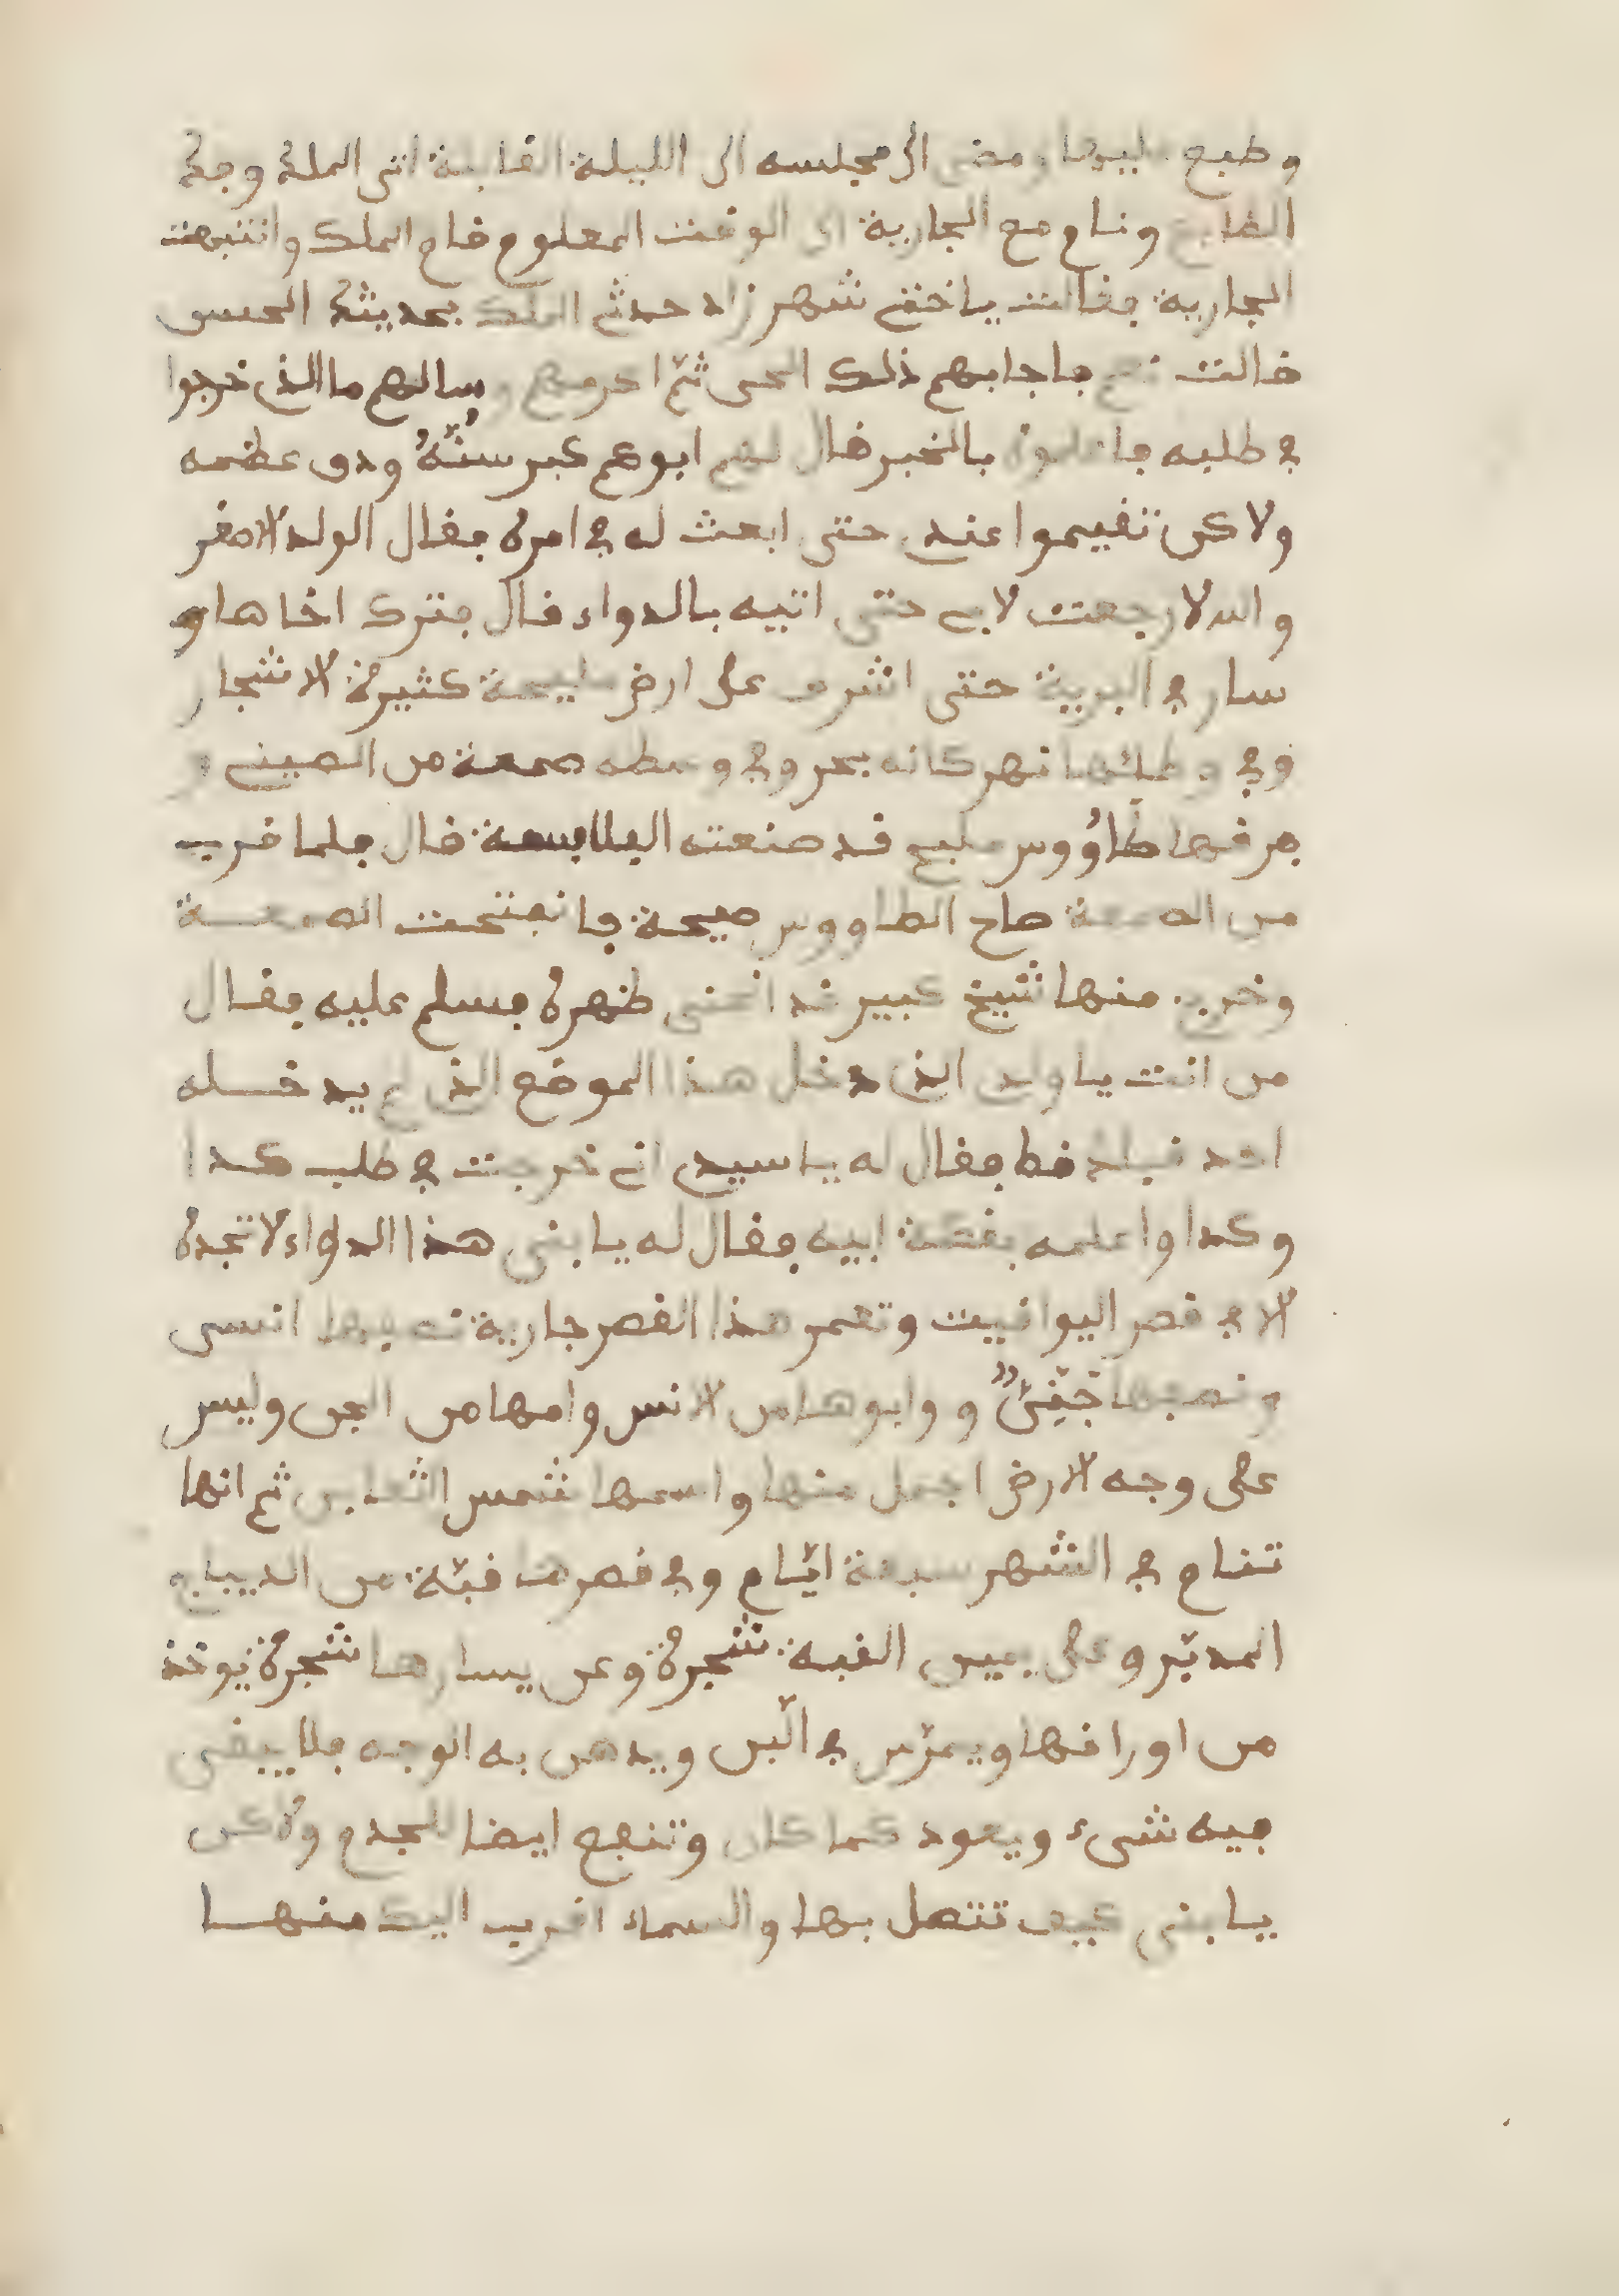 وطبع عليها ومضى الى مجلسه الى الليلة القابلة اتى الملك وجك
الطابع ونام مع الجارية الى الوقت المعلوم قام الملك وانتبهت
الجارية فقالت ياختي شهرزاد حدثي الملك بحديثك الحسن
قالت نعم فاجابهم ذلك الحي ثمّ اكرمهم وسالهم ما الذي خرجوا
في طلبه فاعلموه بالخبر قال لهم ابوكم كبر سنّهُ ودق عظمه
ولاكن تقيموا عندي حتى ابعث له في امره فقال الولد الاصغر
والله لا رجعت لابي حتى اتيه بالدواء قال فترك اخاها و
سار في البرية حتى اشرف على ارض مليحة كثيرة الاشجار
وفي وسطها نهر كانه بحر وفي وسطه صمعة من الصيني و
من فوقها طاوُوس مليح قد صنعته الفلاسفة قال فلما قرب
من الصمعة صاح الطاووس صيحة فانفتحت الصمعــة
وخرج منها شيخ كبير قد انحنى ظهره فسلم عليه فقال
من انت يا ولدي الذي دخل هذا الموضع الذي لم يدخــله
احد قبلك قط فقال له يا سيدي اني خرجت في طلب كدا
وكدا واعلمه بقصة ابيه فقال له يا بني هذا الدواء لا تجده
الا في قصر اليواقيت وتعمر هذا القصر جارية نصفها انسى
ونصفها جَنِّىٌّ و وابوها من الانس وامها من الجن وليس
على وجه الارض اجمل منها واسمها شمس الثعابين ثم انها
تنام في الشهر سبعة ايّام وفي قصرها قبّة من الديباج
المدبّر وعلى يمين القبة شجرة وعن يسارها شجرة يوخذ
من اوراقها ويمرّس في الّبن ويدهن به الوجه فلا يبقى
فيه شىء ويعود كما كان وتنفع ايضا للجدم ولاكن
يا بني كيف تتصل بها والسماء اقرب اليك منهــا